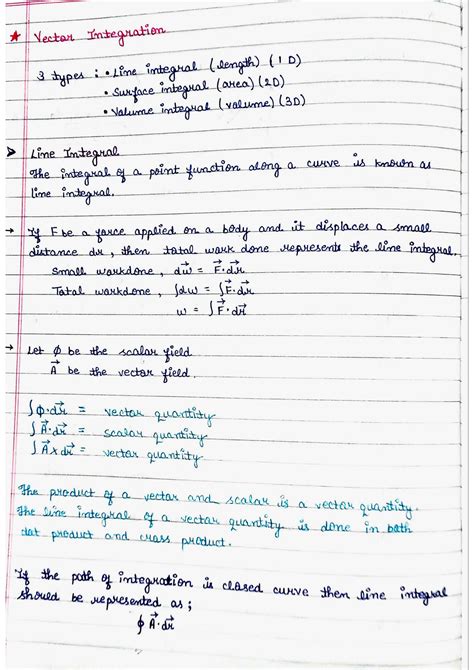 ★ Vector Integration
3 types : • Line integral (length) (1 D)
• Surface integral (area) (2D)
• Volume integral (volume) (3D)
➤ Line Integral
The integral of a point function along a curve is known as
line integral.
→ If F be a force applied on a body and it displaces a small
distance dr, then total work done represents the line integral.
Small workdone, d\vec{w} = \vec{F}·\vec{dr}
Total workdone, ∫dw = ∫\vec{F}·\vec{dr}
w = ∫\vec{F}·\vec{dr}
→ Let ϕ be the scalar field
\vec{A} be the vector field.
∫ϕ·\vec{dr} = vector quantity
∫\vec{A}·\vec{dr} = scalar quantity
∫\vec{A}×\vec{dr} = vector quantity
The product of a vector and scalar is a vector quantity.
The line integral of a vector quantity is done in both
dot product and cross product.
If the path of integration is closed curve then line integral
should be represented as;
∮\vec{A}·\vec{dr}